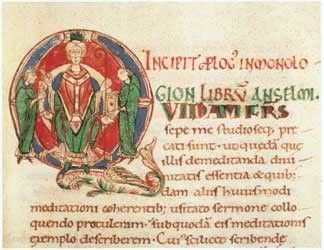 INCIPIT PLOG' IN MONOLO
GION LIBRV ANSELMI.
QVIDAM FRS
sepe me studioseq; pre
cati sunt. ut quedã que
illis de meditanda diui
nitatis essentia & quib;
dam aliis huiusmodi
meditationi coherentib; usitato sermone collo
quendo protuleram. sub quodã eis meditationis
exemplo describerem. Cui' scil&
scribende